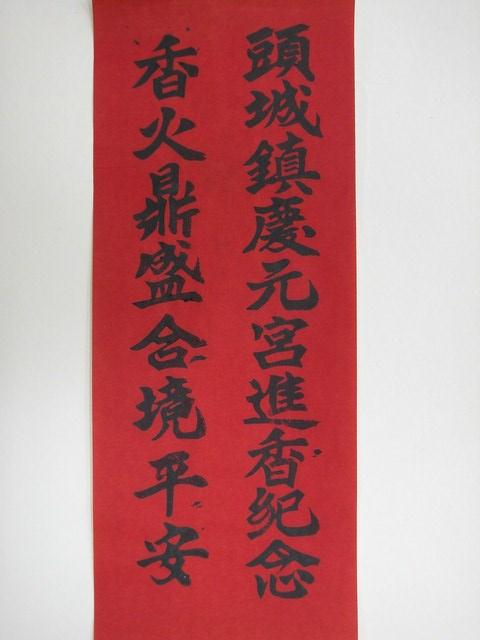 頭城鎮慶元宮進香紀念
香火鼎盛合境平安